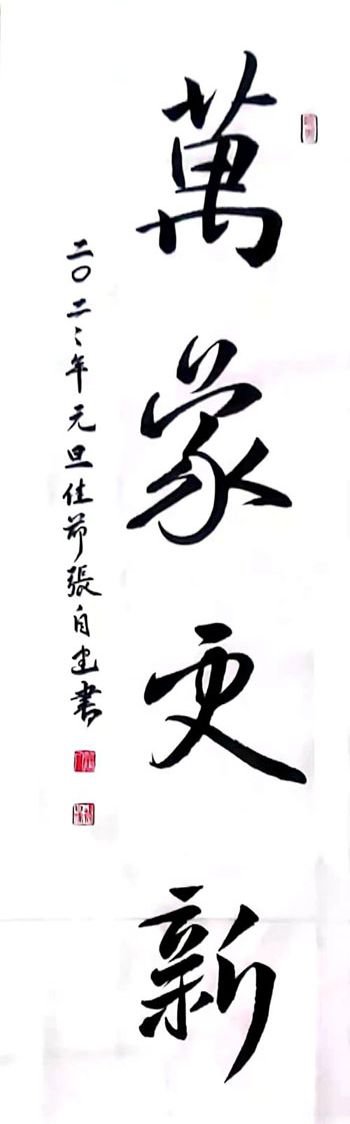 萬象更新
二〇二二年元旦佳節張自生書